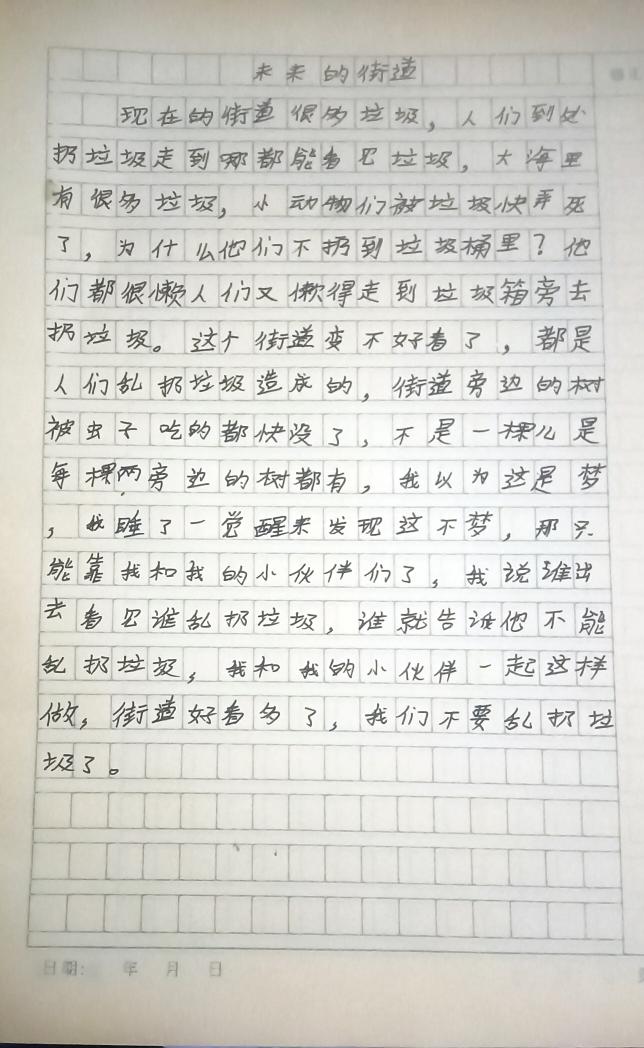 未来的街道
现在的街道很多垃圾，人们到处
扔垃圾走到哪都能看见垃圾，大海里
有很多垃圾，小动物们被垃圾快弄死
了，为什么他们不扔到垃圾桶里？他
们都很懒人们又懒得走到垃圾箱旁去
扔垃圾。这个街道变不好看了，都是
人们乱扔垃圾造成的，街道旁边的树
被虫子吃的都快没了，不是一棵儿是
每棵两旁边的树都有，我以为这是梦
，我睡了一觉醒来发现这不梦，那只
能靠我和我的小伙伴们了，我说谁出
去看见谁乱扔垃圾，谁就告诉他不能
乱扔垃圾，我和我的小伙伴一起这样
做，街道好看多了，我们不要乱扔垃
圾了。
日期： 年 月 日